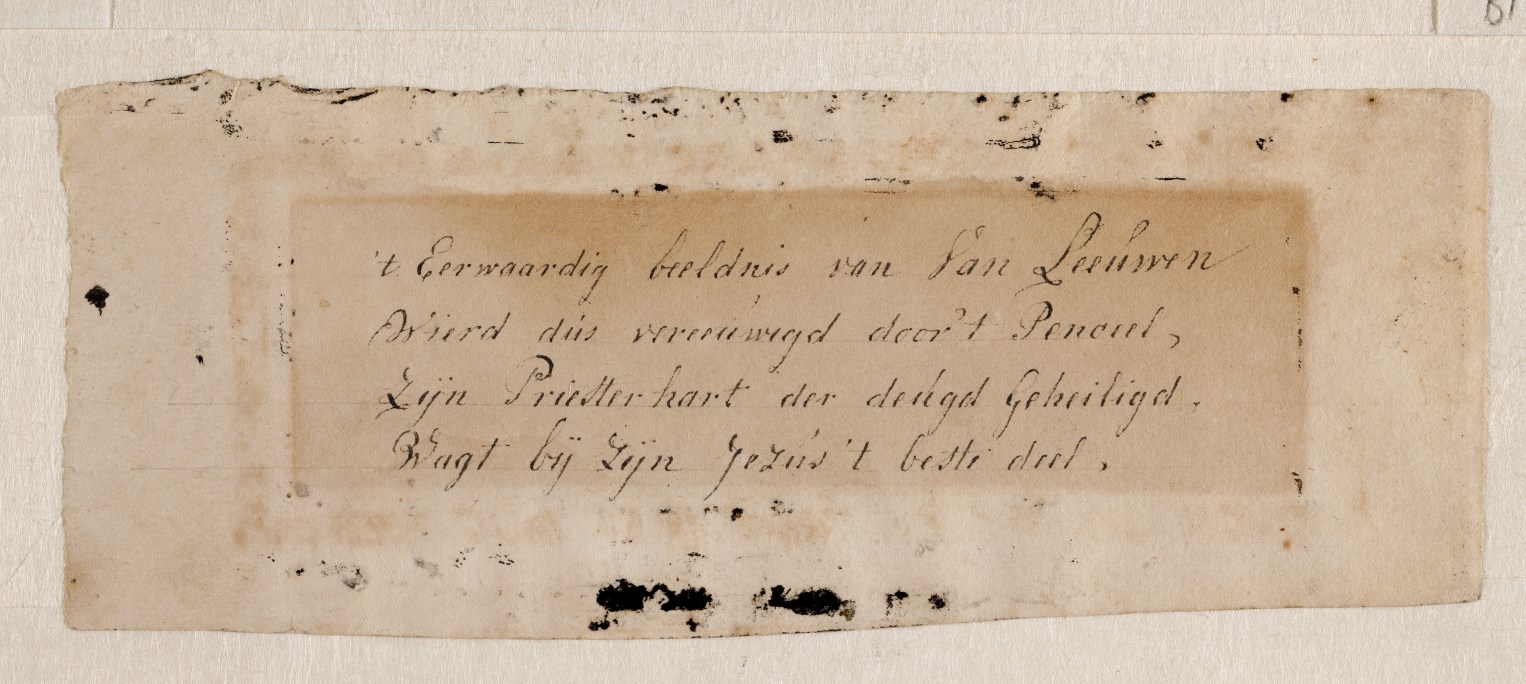 't Eerwaardig beeldnis van Van Leeuwen
Wierd dús vereeúwigd door 't Penceel,
Zijn Priesterhart der deúgd Geheiligd,
Wagt bij Zijn Jezús 't beste deel,